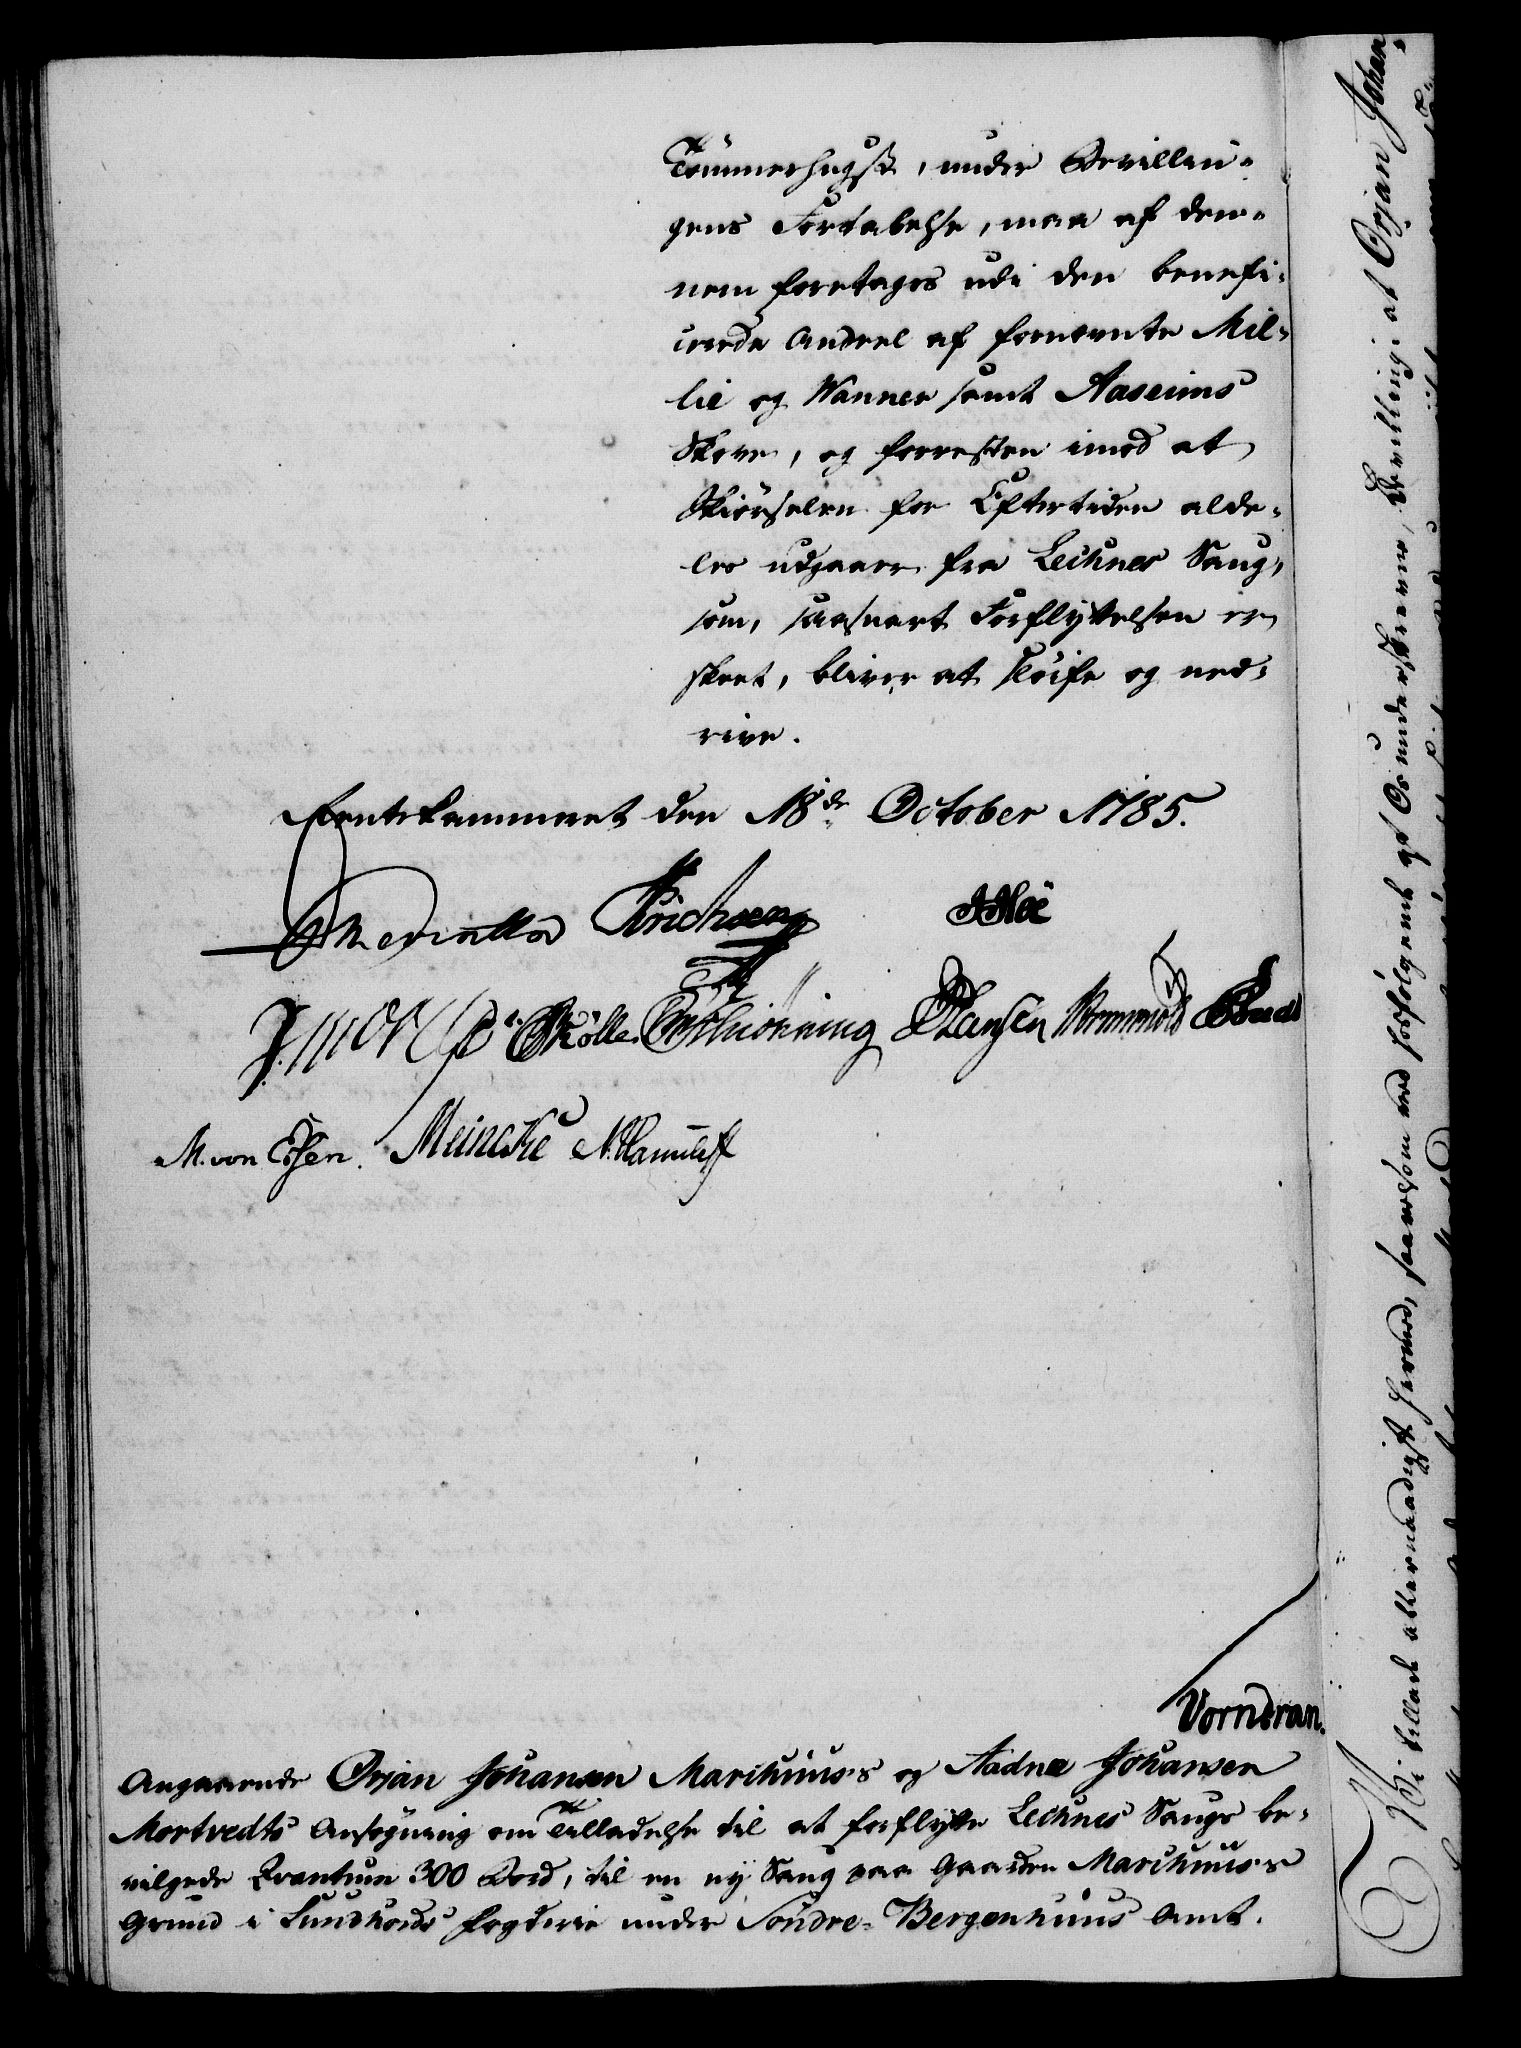 Tömmerhugst, under Bevillin-
gens Fortabelse, maa af den-
nem foretages udi den benefi-
cerede Andeel af fornevnte Mil-
lie og Wanner samt Aaseims
Skove, og forresten imod at
Skiörselen for Eftertiden alde-
les udgaaer fra Lechnes Saug,
som, saasnart Forflyttelsen er
skeet, bliver at slöife og ned-
rive.
Rentekammeret den 18de October 1785.
Erichsen
Möller Schiönning Hansen
M. von Essen. Meincke
Vorndran.
Angaaende Örjan Johansen Marchuus's og Aadne Johansen
Mortvedts Ansögning om Tilladelse til at forflytte Lechnes Saugs be-
vilgede Qvantum 300 Bord, til en ny Saug paa Gaarden Marchuus's
Grund i Sundhords Fogderie under Söndre-Bergenhuus Amt.
Vi tillade allernaadigst hermed, saavelsom ved fölgende af Os underskreven Bevilling, at Örjan Johan-